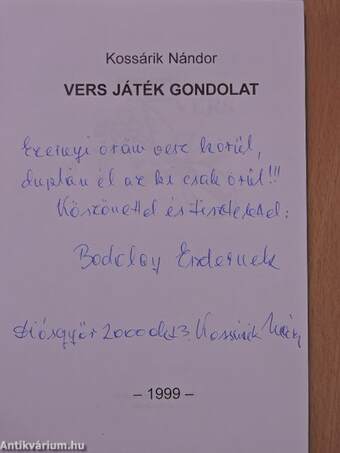 Kossárik Nándor
VERS JÁTÉK GONDOLAT
Ezernyi öröm vesz körül,
duplán él az ki csak örül!!!
Köszönettel és tisztelettel:
Bodolay Endrének
Diósgyőr 2000 okt 3. Kossárik
– 1999 –
Antikvárium.hu